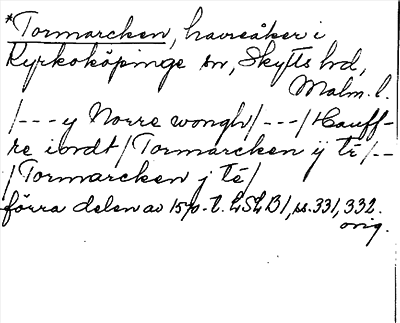 *Tormarcken, havreåker i
Kyrkoköpinge sn, Skytts hd,
Malm. l.
/--- y Norre wongh/---/Hauff-
re iordt/Tormarcken ÿ té/--
/Tormarcken j té/
förra delen av 1570-t. LSLB1, ss. 331, 332.
orig.